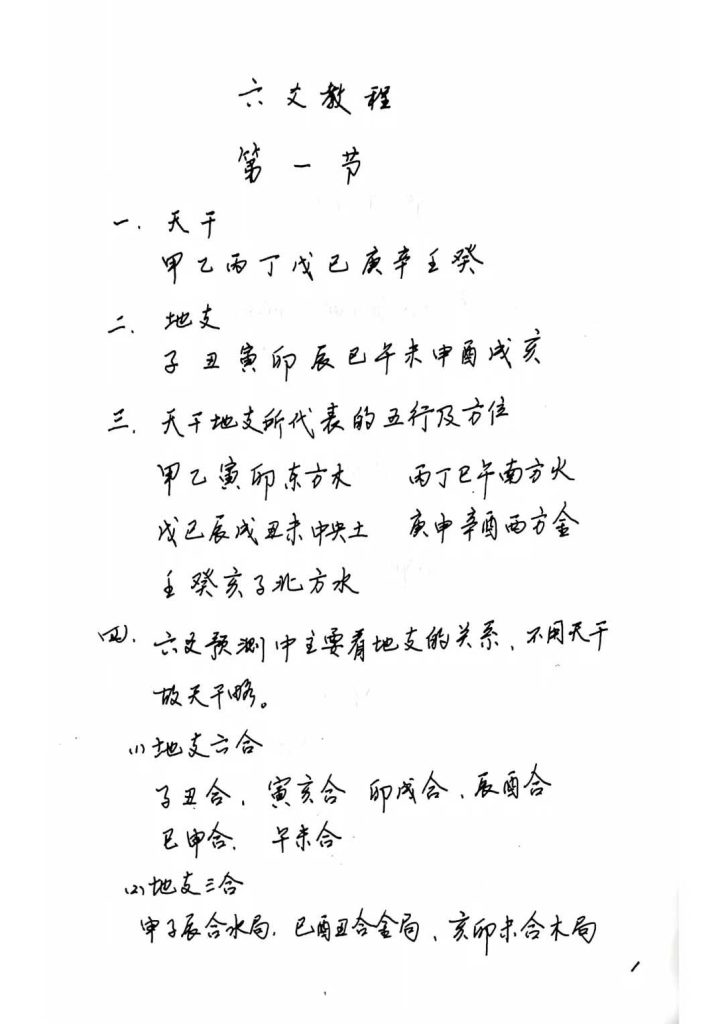 六爻教程
第一节
一. 天干
甲乙丙丁戊己庚辛壬癸
二. 地支
子丑寅卯辰巳午未申酉戌亥
三. 天干地支所代表的五行及方位
甲乙寅卯东方木 丙丁巳午南方火
戊己辰戌丑未中央土 庚申辛酉西方金
壬癸亥子北方水
四. 六爻预测中主要看地支的关系、不用天干
故天干略。
(1)地支六合
子丑合、寅亥合 卯戌合、辰酉合
巳申合. 午未合
(2)地支三合
申子辰合水局. 巳酉丑合金局、亥卯未合木局
1